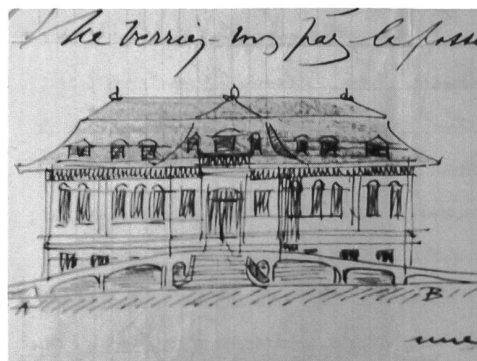 Ne verriez-vous pas la poss
A B
une